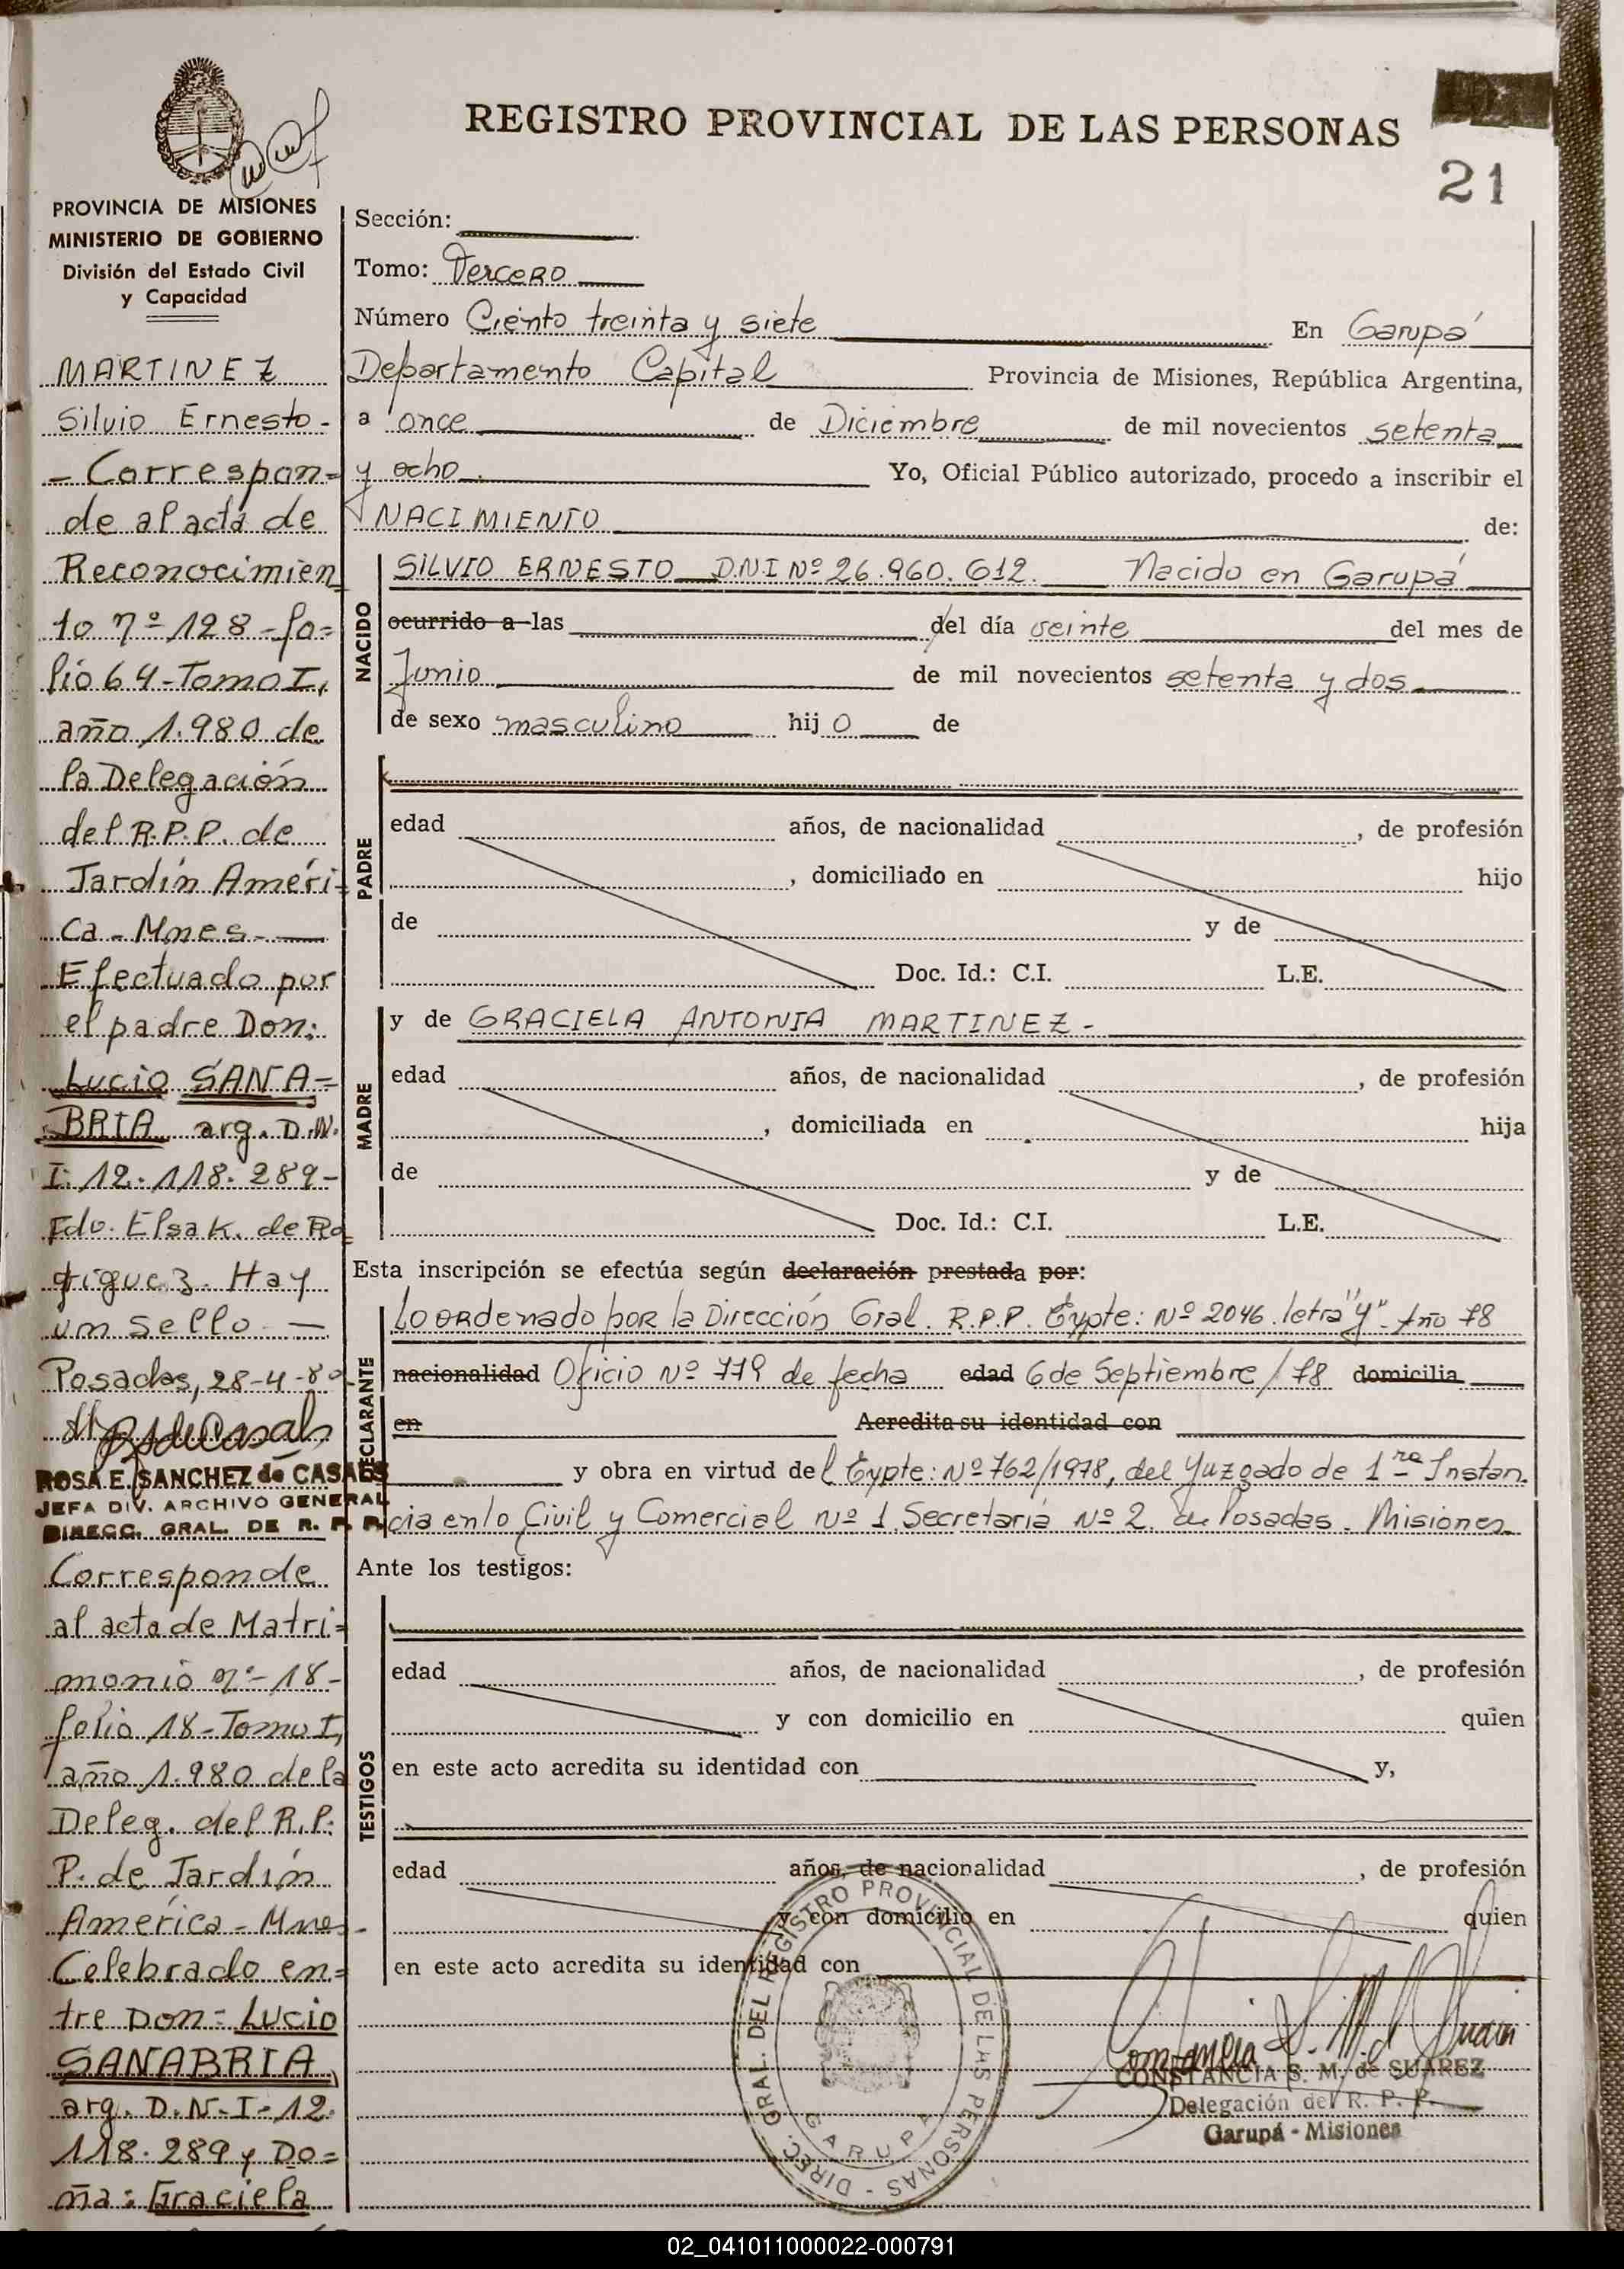 REGISTRO PROVINCIAL DE LAS PERSONAS
21
PROVINCIA DE MISIONES
MINISTERIO DE GOBIERNO
División del Estado Civil
y Capacidad
MARTINEZ
Silvio Ernesto-
- Correspon=
de al acta de
Reconocimien
to nº 128-fo=
lio 64-Tomo I,
año 1.980 de
la Delegación
del R.P.P. de
Jardín Améri=
ca - Mnes -
Efectuado por
el padre Don:
Lucio SANA=
BRIA arg. D.N.
I: 12.118.289-
Fdo. Elsa K. de Ro
driguez. Hay
un sello. -
Posadas, 28-4-80
ROSA E. SANCHEZ de CASALS
JEFA DIV. ARCHIVO GENERAL
DIRECC. GRAL. DE R. P. P.
Corresponde
al acta de Matri=
monio nº-18-
folio 18-Tomo I,
año 1.980 de la
Deleg. del R.P.
P. de Jardín
América - Mnes-
Celebrado en=
tre Don: Lucio
SANABRIA,
arg. D.N.I-12.
118.289 y Do=
ña: Graciela
Sección:
Tomo: Tercero
Número Ciento treinta y siete En Garupá
Departamento Capital Provincia de Misiones, República Argentina,
a once de Diciembre de mil novecientos setenta
y ocho. Yo, Oficial Público autorizado, procedo a inscribir el
NACIMIENTO de:
NACIDO
SILVIO ERNESTO D.N.I Nº 26.960.612. Nacido en Garupá
ocurrido a las del día veinte del mes de
Junio de mil novecientos setenta y dos
de sexo masculino hijo de
PADRE
edad años, de nacionalidad , de profesión
, domiciliado en hijo
de y de
Doc. Id.: C.I. L.E.
MADRE
y de GRACIELA ANTONIA MARTINEZ-
edad años, de nacionalidad , de profesión
, domiciliada en hija
de y de
Doc. Id.: C.I. L.E.
Esta inscripción se efectúa según declaración prestada por:
DECLARANTE
Lo ordenado por la Dirección Gral. R.P.P. Expte: Nº 2046 letra "Y" Año 78
nacionalidad Oficio Nº 779 de fecha edad 6 de Septiembre/78 domicilia
en Acredita su identidad con
y obra en virtud del Expte: Nº 762/1978, del Juzgado de 1ra Instan.
cia en lo Civil y Comercial Nº 1 Secretaria Nº 2. de Posadas. Misiones
Ante los testigos:
TESTIGOS
edad años, de nacionalidad , de profesión
y con domicilio en quien
en este acto acredita su identidad con y,
edad años, de nacionalidad , de profesión
y con domicilio en quien
en este acto acredita su identidad con
DIREC. GRAL. DEL REGISTRO PROVINCIAL DE LAS PERSONAS -
GARUPA
CONSTANCIA S. M. de SUAREZ
Delegación del R. P. P.
Garupá - Misiones
02_041011000022-000791